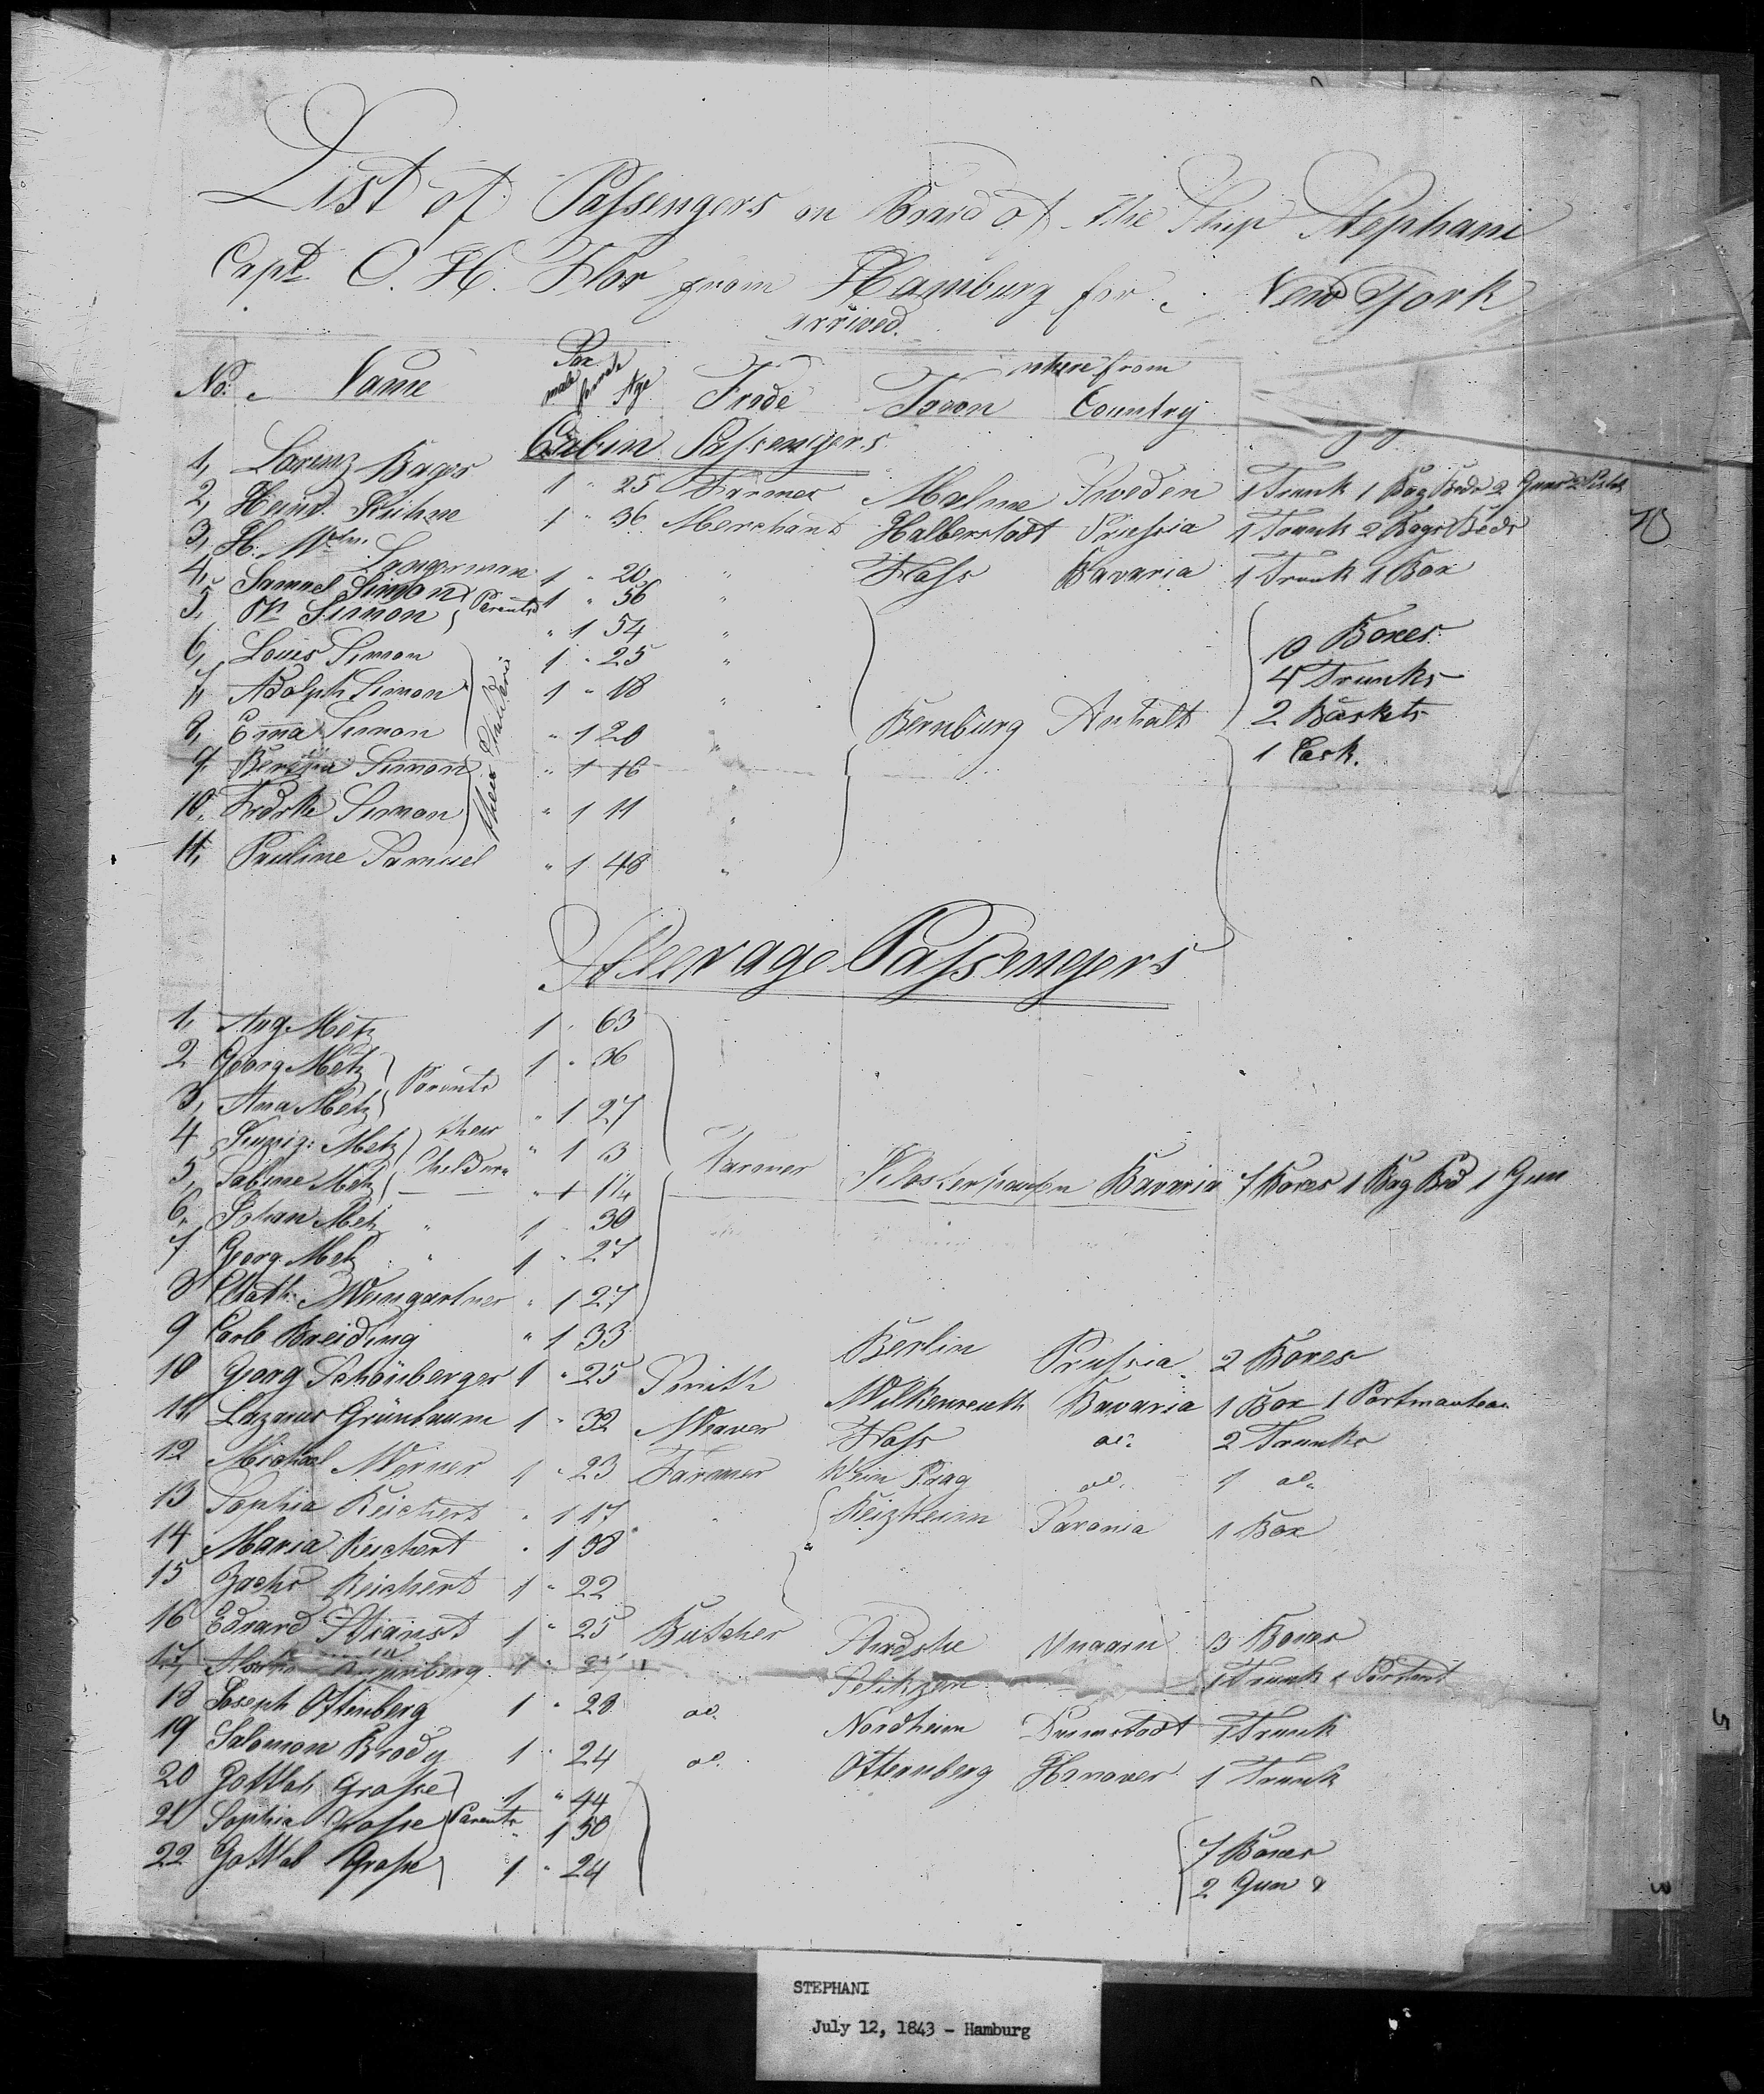 List of Passengers on Board of the Ship Stephani
Capt. C. H. Flor from Hamburg for New York
arrived.
No. Name Sex male female Age Trade Town where from Country
Cabin Passengers
1, Lorenz Bager 1 " 25 Farmer Malme Sweden 1 Trunk 1 Bag Beds 2 Guns
2, Heinr. Kühne 1 " 36 Merchant Halberstadt Prussia 1 Trunk 2 Bags Beds
3, H. Wm. Langerman 1 " 20 " Hass Bavaria 1 Trunk 1 Box
4, Samuel Simon 1 " 56 " Parents
5, Simon " 1 54 "
6, Louis Simon 1 " 25 " 10 Boxes
7, Adolph Simon 1 " 18 " their Children 4 Trunks
8, Ema Simon " 1 20 " Bernburg Anhalt 2 Baskets
9, Simon " 1 16 " 1 Cask.
10, Fredrke Simon " 1 11 "
11, Pauline Samuel " 1 48 "
Steerage Passengers
1, Aug. Metz 1 " 63
2 Georg Metz 1 " 36 Parents
3, Ana Metz " 1 27
4 Metz their " 1 3
5, Sabine Metz Children " 1 1/4 Farmer Bavaria 7 Boxes 1 Bag Bed 1 Gun
6, Johan Metz " 1 " 30
7 Georg Metz " 1 " 27
8 Cath. Weingartner " 1 27
9 Carle Breiding " 1 33 Berlin Prussia 2 Boxes
10 Georg Schönberger 1 " 25 Smith Wilkenreuth Bavaria 1 Box 1 Portmanteau
11, Lazarus Grünbaum 1 " 32 Weaver Hass do. 2 Trunks
12 Michael Werner 1 " 23 Farmer do. 1 do.
13 Sophia Reichert " 1 17 " Reizheim 1 Box
14 Maria Reichert " 1 38
15 Zachs Reichert 1 " 22
16 Edward 1 " 25 Butcher 3 Boxes
17, 1 " 1 Trunk
18 Joseph Ottenberg 1 " 28 do. Nordheim Darmstadt 1 Trunk
19 Salomon Brody 1 " 24 do. Ottenberg Hanover 1 Trunk
20 Gottlob Grosse 1 " 44
21 Sophia Grosse Parents " 1 50 7 Boxes
22 Gottlob Grosse 1 " 24 2 Gun
STEPHANI
July 12, 1843 - Hamburg